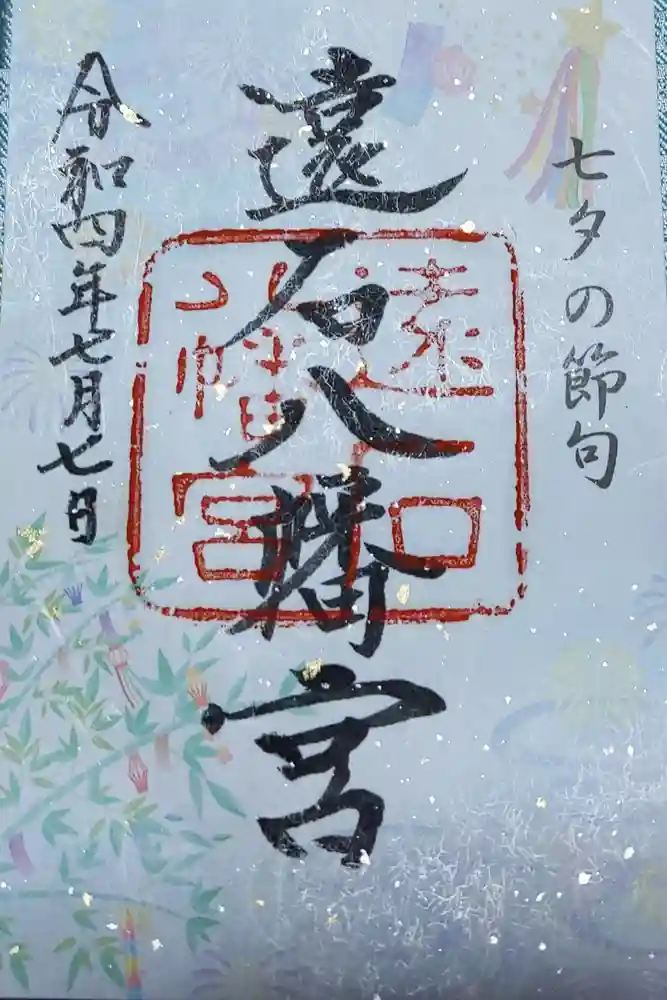 七夕の節句
遠石八幡宮
遠石
八幡宮
令和四年七月七日